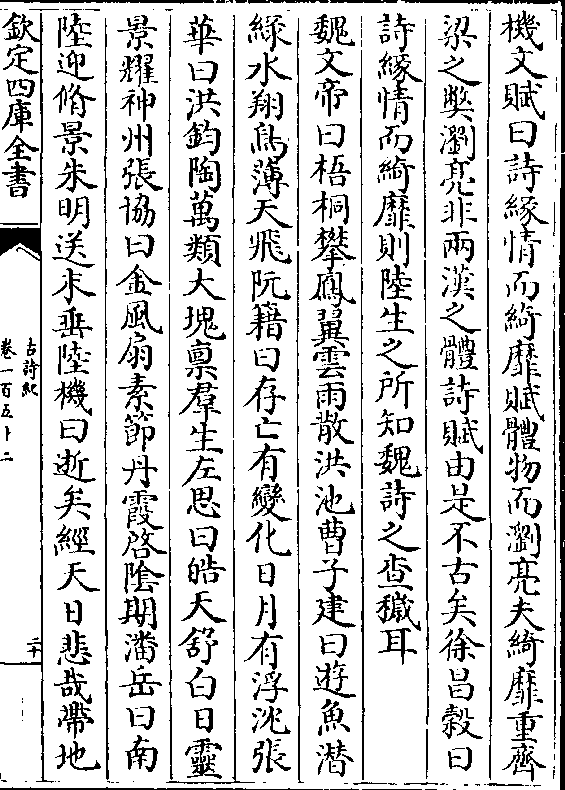 機文賦曰詩緣情而綺靡賦體物而瀏亮夫綺靡重齊
梁之弊瀏亮非兩漢之體詩賦由是不古矣徐昌榖曰
詩緣情而綺靡則陸生之所知魏詩之查穢耳
魏文帝曰梧桐攀鳳翼雲雨散洪池曹子建曰遊魚潛
綠水翔鳥薄天飛阮籍曰存亡有變化日月有浮沈張
華曰洪鈞陶萬類大塊禀羣生左思曰皓天舒白日靈
景耀神州張協曰金風扇素節丹霞啓陰期潘岳曰南
陸迎脩景朱明送末垂陸機曰逝矣經天日悲哉帶地
欽定四庫全書
古詩紀
卷一百五十二
二十